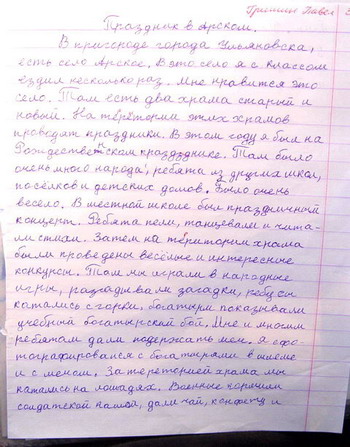 Гришин Павел 3
Праздник в Арском.
В пригороде города Ульяновска,
есть село Арское. В это село я с классом
ездил несколько раз. Мне нравится это
село. Там есть два храма старый и
новый. На теретории этих храмов
проводят праздники. В этом году я был на
Рождественском празднике. Там было
очень много народа, ребята из других школ,
посёлков и детских домов. Было очень
весело. В местной школе был праздничный
концерт. Ребята пели, танцевали и чита-
ли стихи. Затем на територии храма
были проведены весёлые и интересные
конкурсы. Там мы играли в народные
игры, разгадывали загадки, ребусы
катались с горки, богатыри показывали
учебный богатырский бой. Мне и многим
ребятам дали подержать меч, я сфо-
тографировался с богатырями в шлеме
и с мечом. За череторией храма мы
катались на лошадях. Военные кормили
солдатской кашей, дали чай, конфеты и